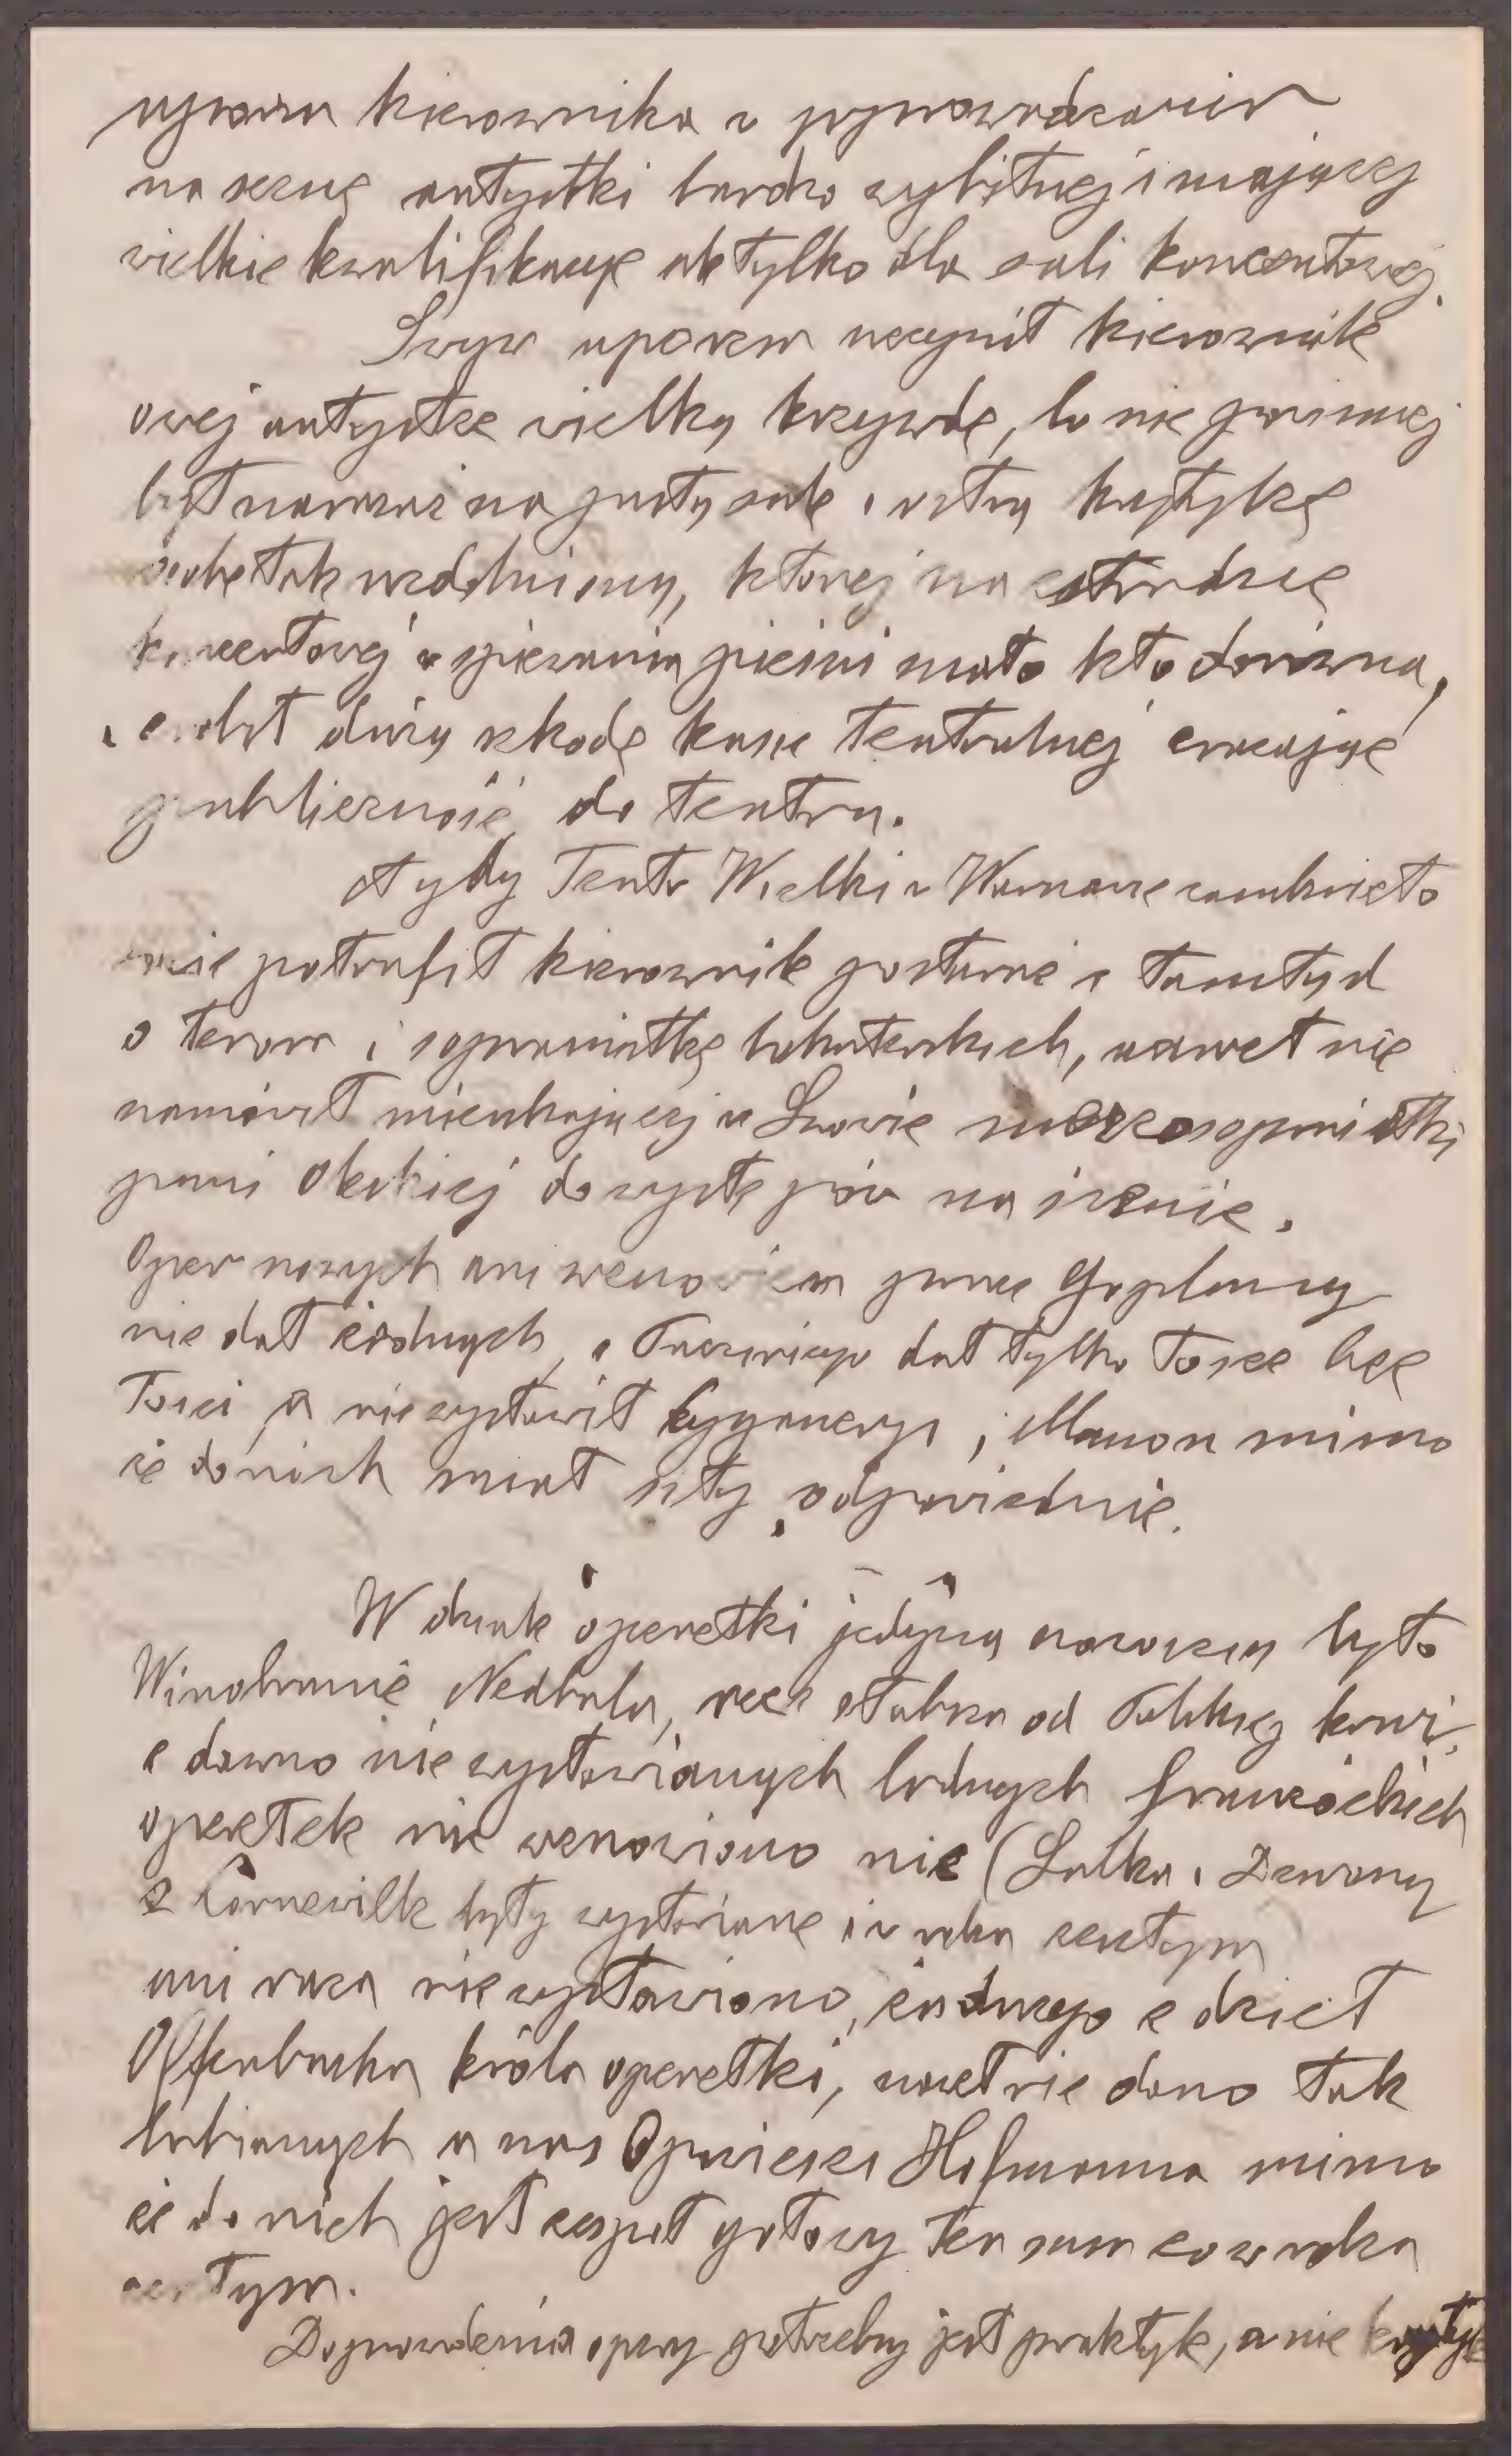 uporem kierownika w wyprowadzaniu
na scenę artystki bardzo wybitnej i mającej
wielkie kwalifikacye ale tylko dla sali koncertowej.
Swym uporem uczynił kierownik
owej artystce wielką krzywdę, bo nie powinien
był narazać na pustą salę i ostrą krytykę
osobę tak uzdolnioną, której na estradzie
koncertowej w śpiewaniu pieśni mało kto dorówna,
i zrobił dużą szkodę kasie teatralnej zrażając
publiczność do teatru.
Gdy Teatr Wielki w Warszawie zamknięto
nie potrafił kierownik postarać z tamtąd
o tenora i sopranistkę bohaterskich, nawet nie
namówił mieszkającej w Lwowie mezzosopranistki
pani Okońskiej do występów na scenie.
Oper nowych ani wznowień prócz Goplany
nie dał żadnych, z Pucciniego dał tylko Toscę bez
Tosci, a nie wystawił Cyganeryi, i Manon mimo
że do nich miał siły odpowiednie.
W dziale operetki jedyną nowością było
Winobranie Nedbala, rzecz słabsza od Polskiej krwi,
z dawno nie wystawianych ładnych francuskich
operetek nie wznowiono nic (Lalka i Dzwony
z Corneville były wystawiane i w roku zeszłym
ani razu nie wystawiono żadnego z dzieł
Offenbacha króla operetki, nawet nie dano tak
lubianych u nas Opowieści Hofmanna mimo
że do nich jest zespół gotowy ten sam co w roku
zeszłym.
Do prowadzenia opery potrzebny jest praktyk, a nie krytyk